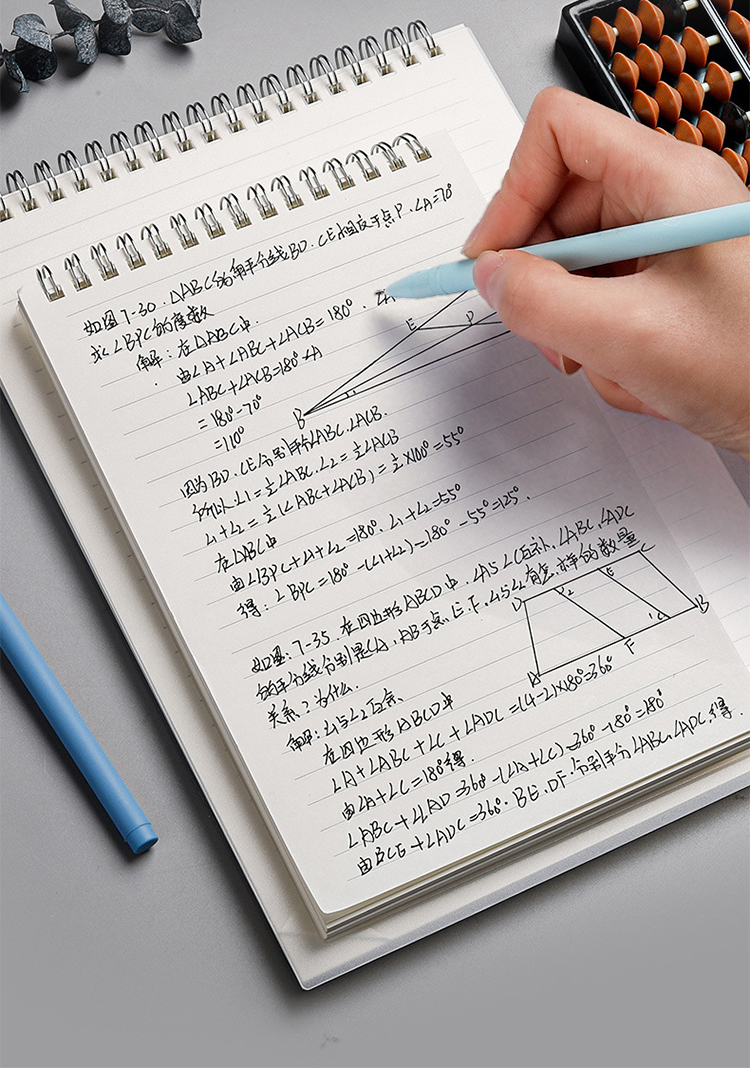 如图7-30.△ABC的角平分线BD.CE相交于点P.∠A=70°
求∠BPC的度数
解:在△ABC中.
由∠A+∠ABC+∠ACB=180°.
∠ABC+∠ACB=180°-∠A
=180°-70°
=110°
E
P
B
因为BD.CE分别平分∠ABC.∠ACB.
所以.∠1=½∠ABC.∠2=½∠ACB
∠1+∠2=½(∠ABC+∠ACB)=½×100°=55°
在△ABC中
由∠BPC+∠1+∠2=180°.∠1+∠2=55°
得:∠BPC=180°-(∠1+∠2)=180°-55°=125°.
如图:7-35.在四边形ABCD中.∠A与∠C互补.∠ABC.∠ADC
的平分线分别是CA.AB于点E.F.∠1与∠2有怎样的数量
关系?为什么.
D
2
E
C
1
B
A
F
解:∠1与∠2互余
在四边形ABCD中
∠A+∠ABC+∠C+∠ADC=(4-2)×180°=360°
由∠A+∠C=180°得.
∠ABC+∠AD=360°-(∠A+∠C)=360°-180°=180°
由BCE+∠ADC=360°.BE.DF.分别平分∠ABC.∠ADC.得.